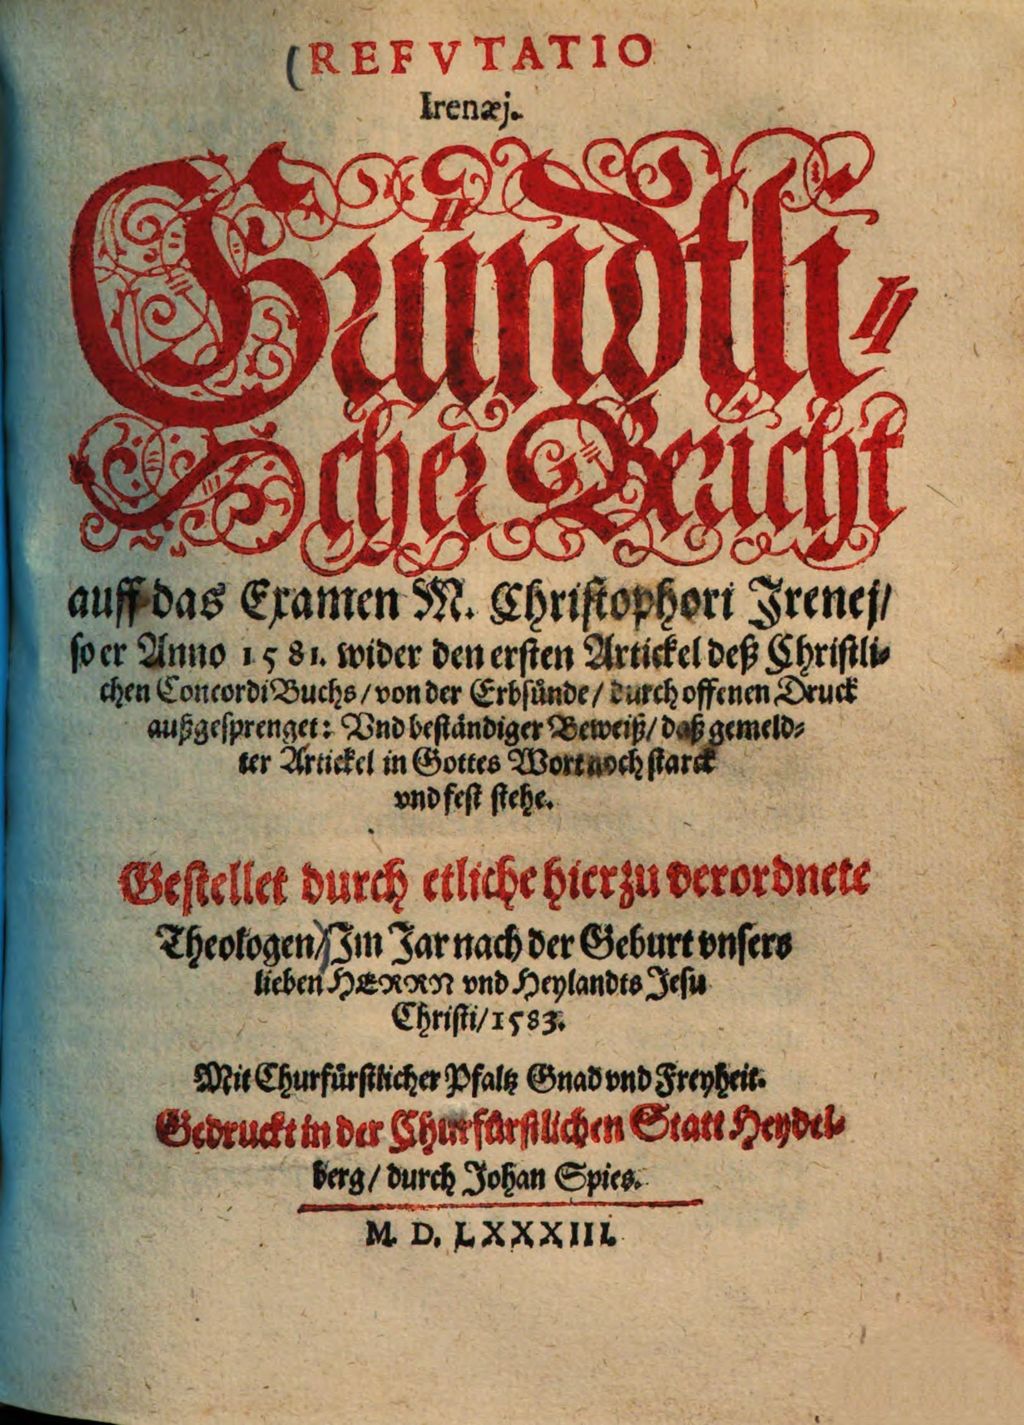 (REFVTATIO
Irenæj.
Gründtli⸗
cher Bericht
auff das Examen M. Christophori Irenej/
so er Anno 1581. wider den ersten Artickel deß Christli⸗
chen ConcordiBuchs/ von der Erbsünde/ durch offenen Druck
außgesprenget: Vnd beständiger Beweiß/ daß gemeld⸗
ter Artickel in Gottes Wort noch starck
vnd fest stehe.
Gestellet durch etliche hierzu verordnete
Theologen/ Im Jar nach der Geburt vnsers
lieben HERRN vnd Heylandts Jesu
Christi/ 1583.
Mit Churfürstlicher Pfaltz Gnad vnd Freyheit.
Gedruckt in der Churfürstlichen Statt Heydel⸗
berg/ durch Johan Spies.
M. D. LXXXIII.